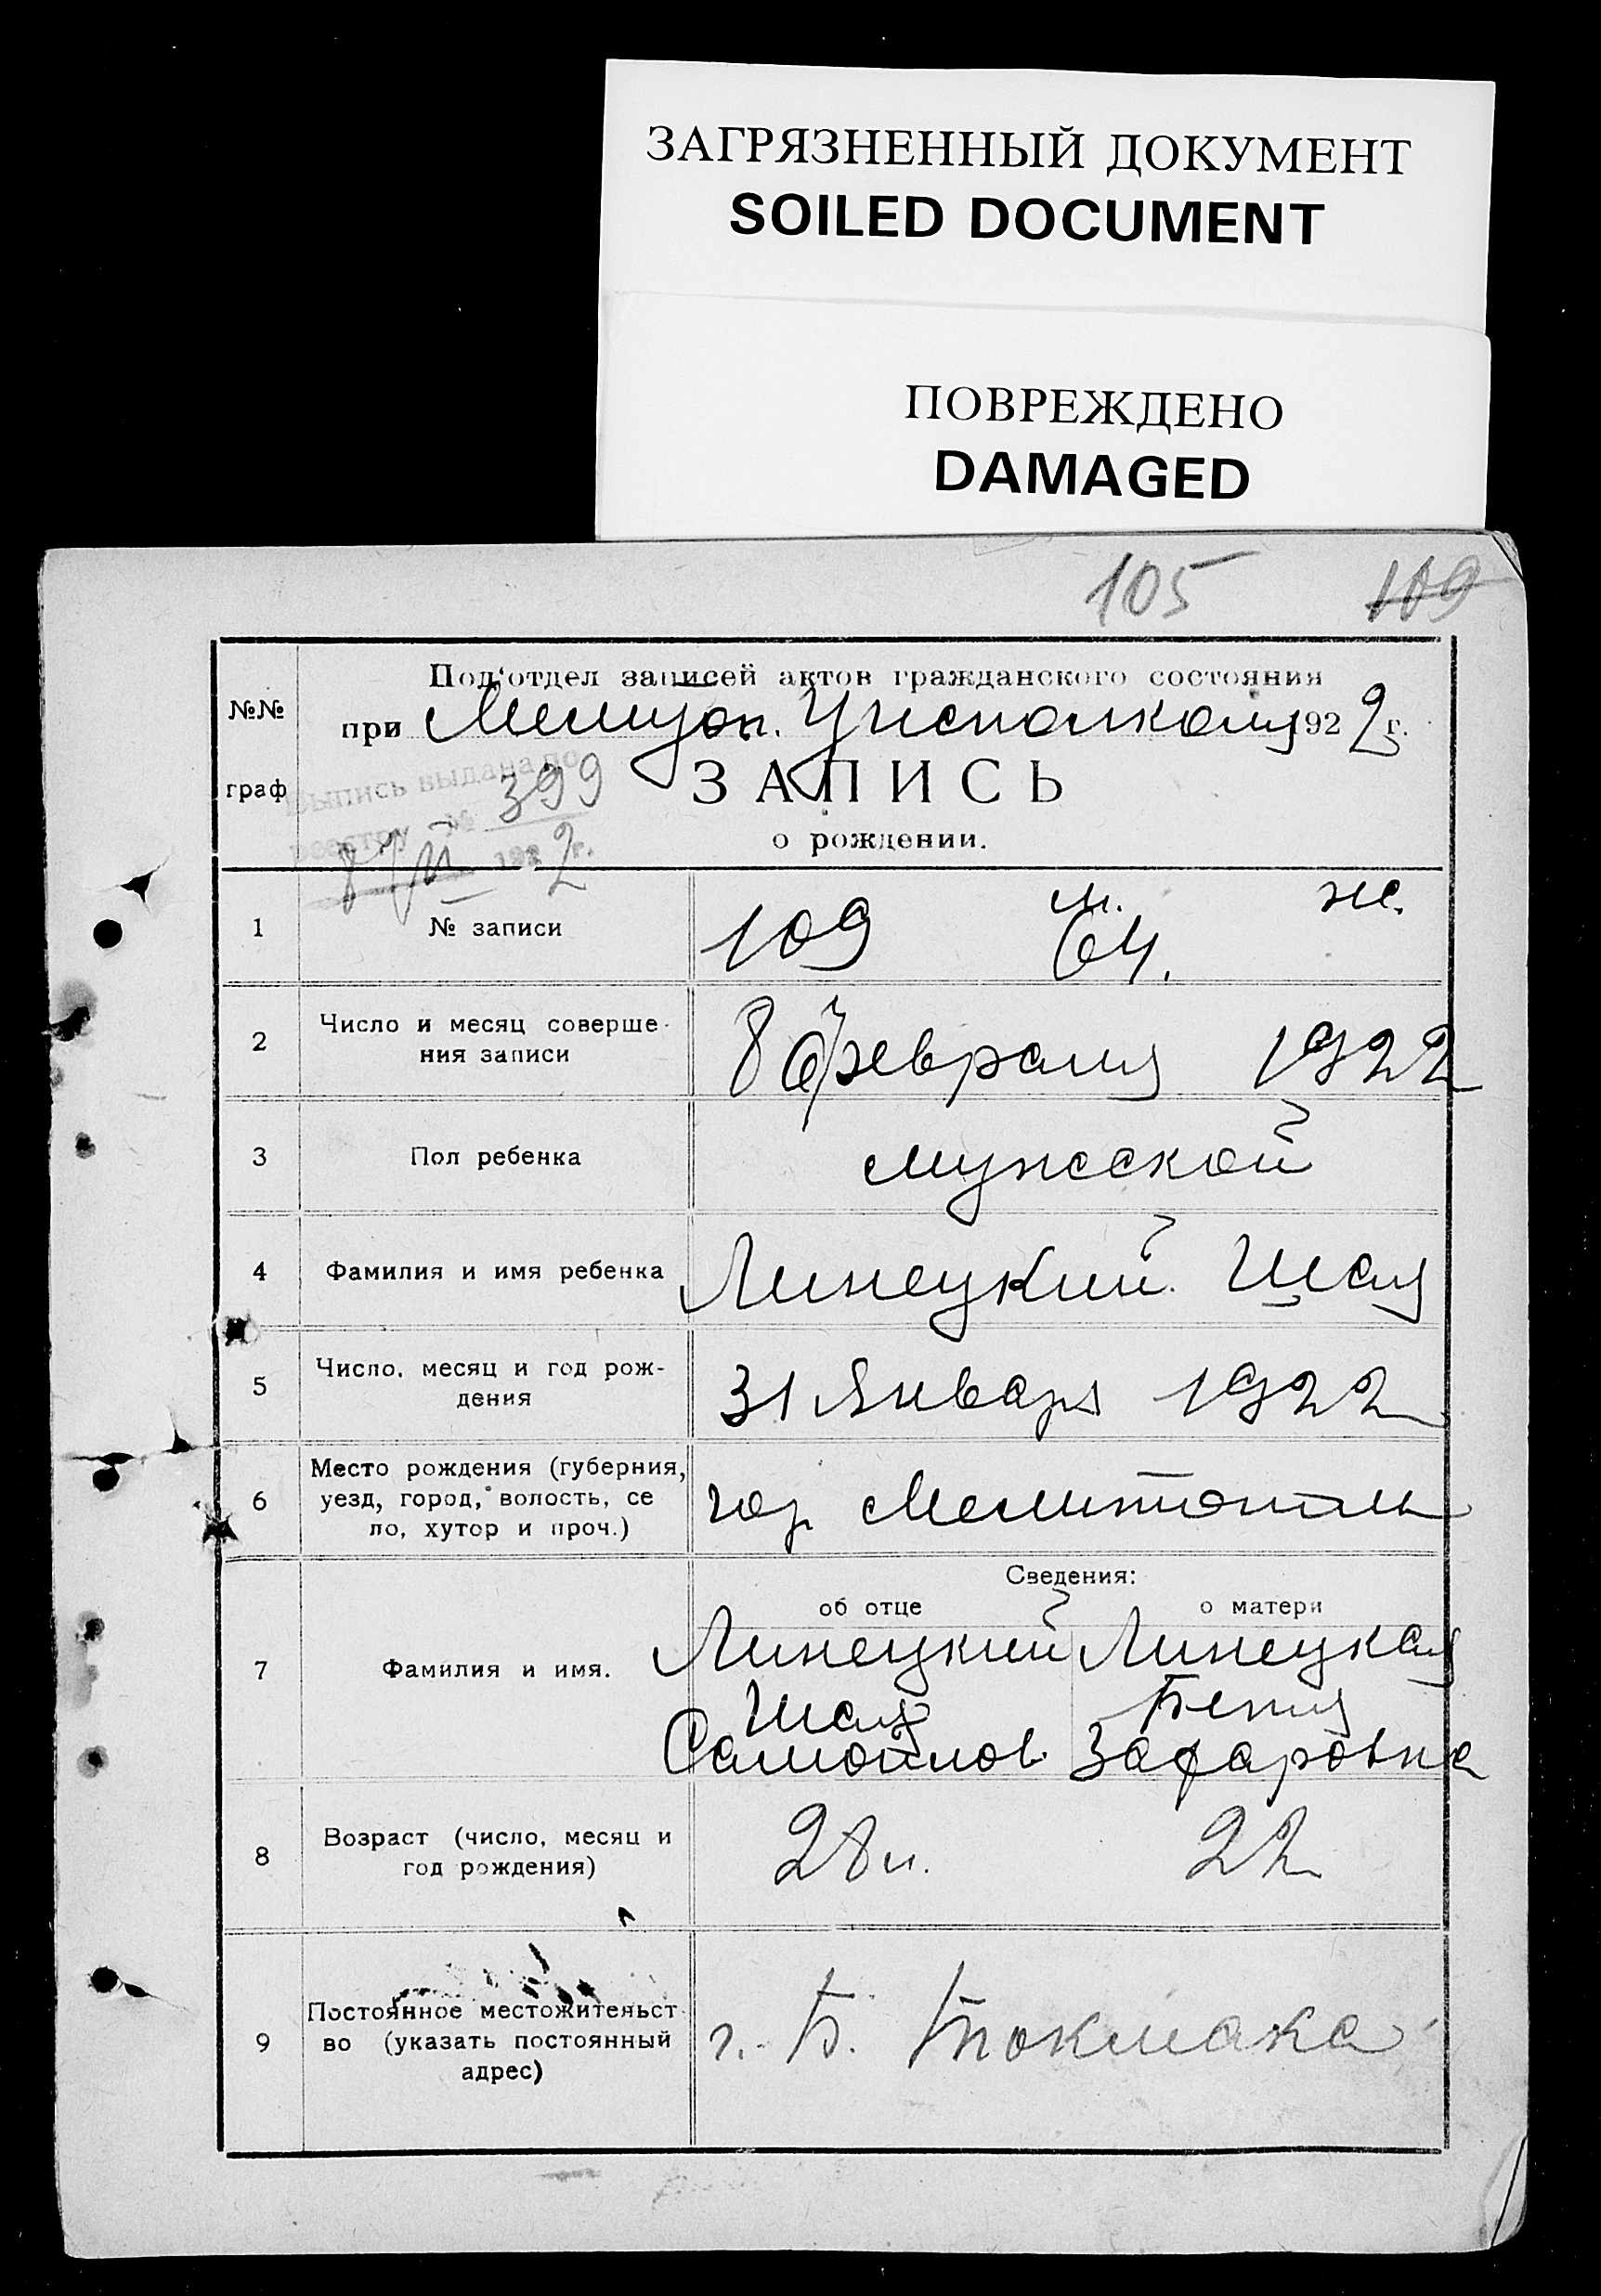 ЗАГРЯЗНЕННЫЙ ДОКУМЕНТ
SOILED DOCUMENT
ПОВРЕЖДЕНО
DAMAGED
105 109
Под‘отдел записей актов гражданского состояния
№№
при Мелитоп. Уисполкома 1922 г.
граф
Выпись выдана по
реестру № 399
8/II 1922 г.
ЗАПИСЬ
о рождении.
м. ж.
1 № записи 109 64.
2 Число и месяц соверше-
ния записи
8 Февраля 1922
3 Пол ребенка мужской
4 Фамилия и имя ребенка Линецкий Шая
5 Число, месяц и год рож-
дения
31 Января 1922
6 Место рождения (губерния,
уезд, город, волость, се
ло, хутор и проч.)
гор Мелитополь
Сведения:
об отце о матери
7 Фамилия и имя.
Линецкий Линецкая
Шая Бетя
Самойлов Захаровна
8 Возраст (число, месяц и
год рождения)
28 л. 22
9 Постоянное местожительст
во (указать постоянный
адрес)
г. Б. Токмака